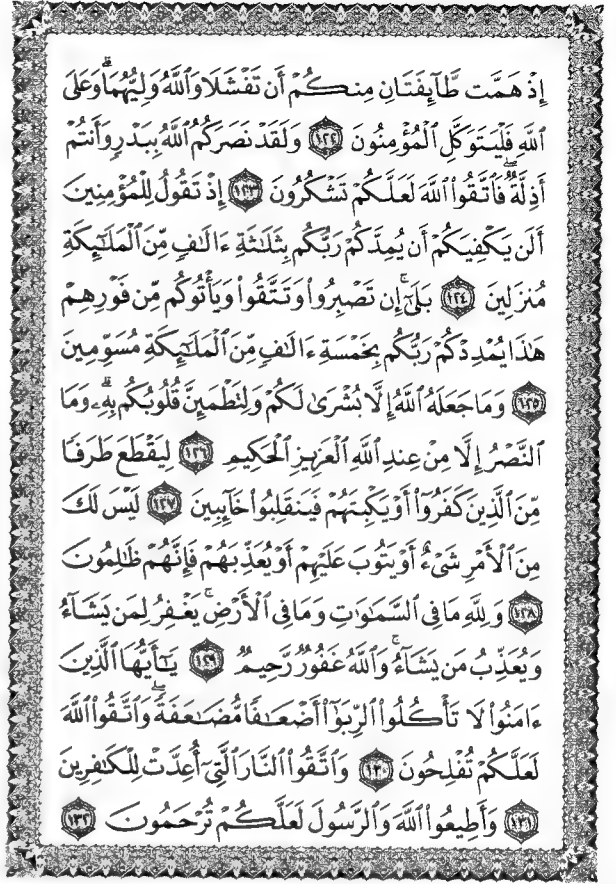 إِذْ هَمَّت طَّآئِفَتَانِ مِنكُمْ أَن تَفْشَلَا وَٱللَّهُ وَلِيُّهُمَا ۗ وَعَلَى
ٱللَّهِ فَلْيَتَوَكَّلِ ٱلْمُؤْمِنُونَ ١٢٢ وَلَقَدْ نَصَرَكُمُ ٱللَّهُ بِبَدْرٍ وَأَنتُمْ
أَذِلَّةٌ ۖ فَٱتَّقُوا۟ ٱللَّهَ لَعَلَّكُمْ تَشْكُرُونَ ١٢٣ إِذْ تَقُولُ لِلْمُؤْمِنِينَ
أَلَن يَكْفِيَكُمْ أَن يُمِدَّكُمْ رَبُّكُم بِثَلَٰثَةِ ءَالَٰفٍ مِّنَ ٱلْمَلَٰٓئِكَةِ
مُنزَلِينَ ١٢٤ بَلَىٰٓ ۚ إِن تَصْبِرُوا۟ وَتَتَّقُوا۟ وَيَأْتُوكُم مِّن فَوْرِهِمْ
هَٰذَا يُمْدِدْكُمْ رَبُّكُم بِخَمْسَةِ ءَالَٰفٍ مِّنَ ٱلْمَلَٰٓئِكَةِ مُسَوِّمِينَ
١٢٥ وَمَا جَعَلَهُ ٱللَّهُ إِلَّا بُشْرَىٰ لَكُمْ وَلِتَطْمَئِنَّ قُلُوبُكُم بِهِۦ ۗ وَمَا
ٱلنَّصْرُ إِلَّا مِنْ عِندِ ٱللَّهِ ٱلْعَزِيزِ ٱلْحَكِيمِ ١٢٦ لِيَقْطَعَ طَرَفًا
مِّنَ ٱلَّذِينَ كَفَرُوٓا۟ أَوْ يَكْبِتَهُمْ فَيَنقَلِبُوا۟ خَآئِبِينَ ١٢٧ لَيْسَ لَكَ
مِنَ ٱلْأَمْرِ شَىْءٌ أَوْ يَتُوبَ عَلَيْهِمْ أَوْ يُعَذِّبَهُمْ فَإِنَّهُمْ ظَٰلِمُونَ
١٢٨ وَلِلَّهِ مَا فِى ٱلسَّمَٰوَٰتِ وَمَا فِى ٱلْأَرْضِ ۚ يَغْفِرُ لِمَن يَشَآءُ
وَيُعَذِّبُ مَن يَشَآءُ ۚ وَٱللَّهُ غَفُورٌ رَّحِيمٌ ١٢٩ يَٰٓأَيُّهَا ٱلَّذِينَ
ءَامَنُوا۟ لَا تَأْكُلُوا۟ ٱلرِّبَوٰٓا۟ أَضْعَٰفًا مُّضَٰعَفَةً ۖ وَٱتَّقُوا۟ ٱللَّهَ
لَعَلَّكُمْ تُفْلِحُونَ ١٣٠ وَٱتَّقُوا۟ ٱلنَّارَ ٱلَّتِىٓ أُعِدَّتْ لِلْكَٰفِرِينَ
١٣١ وَأَطِيعُوا۟ ٱللَّهَ وَٱلرَّسُولَ لَعَلَّكُمْ تُرْحَمُونَ ١٣٢